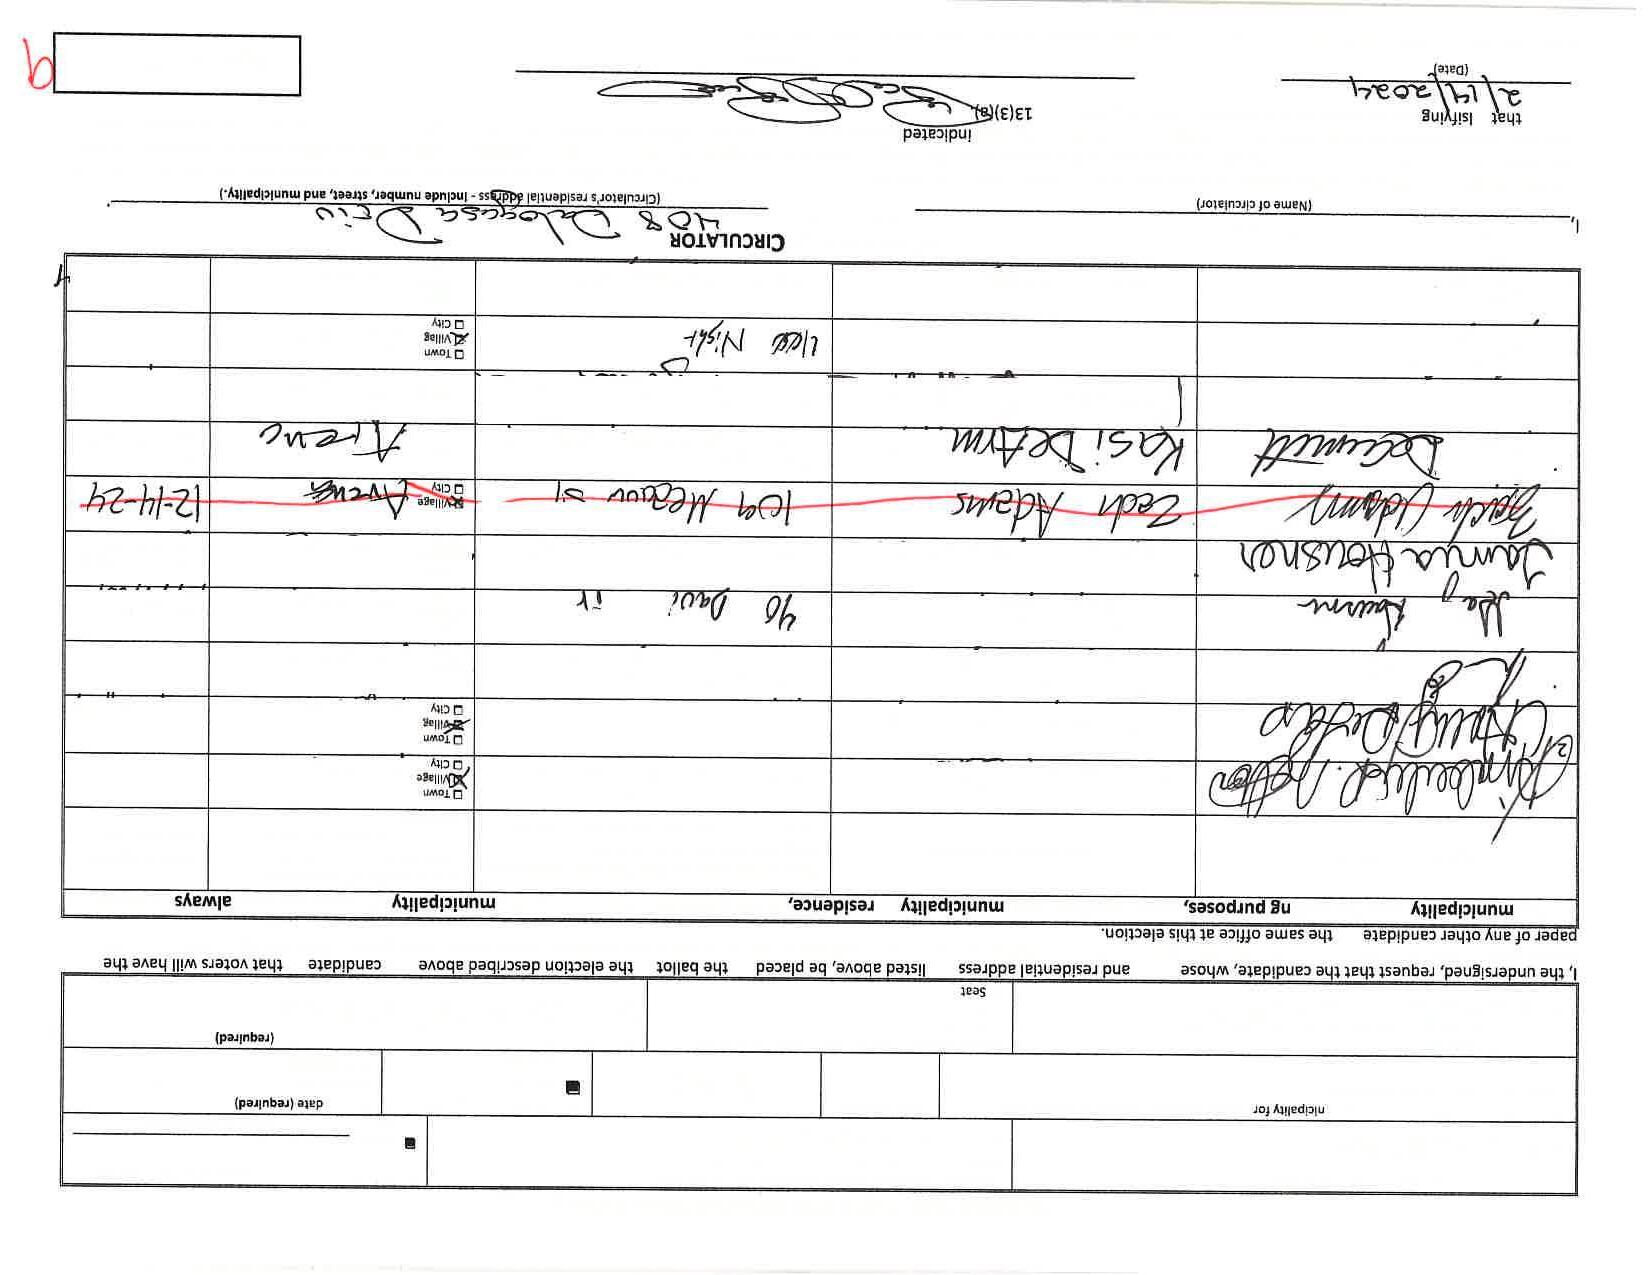 nicipality for
date (required)
Seat
(required)
I, the undersigned, request that the candidate, whose and residential address listed above, be placed the ballot the election described above candidate that voters will have the
paper of any other candidate the same office at this election.
municipality ng purposes, municipality residence, municipality always
☐ Town
Village
☐ City
2
☐ Town
Village
☐ City
40 Davi
Tamia Housner
Zach Adams Zach Adams 109 Meadow St Village Arena 12-14-24
☐ City
Kasi DeArm Arena
☐ Town
Night Village
☐ City
4
CIRCULATOR
408 Dalogasa Driv
I, (Name of circulator) (Circulator's residential address - include number, street, and municipality.)
indicated
that lsifying 13(3)(a),
2/14/2024
(Date)